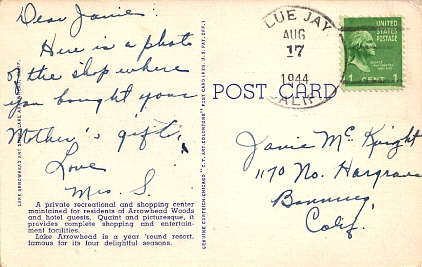 Dear Janie:
Here is a photo
of the shop where
you bought your
Mother's gift.
Love
Mrs. S.
A private recreational and shopping center
maintained for residents of Arrowhead Woods
and hotel guests. Quaint and picturesque, it
provides complete shopping and entertain-
ment facilities.
Lake Arrowhead is a year 'round resort,
famous for its four delightful seasons.
GENUINE CURTEICH-CHICAGO "C.T. ART-COLORTONE" POST CARD (REG. U.S. PAT. OFF.)
BLUE JAY
AUG
17
1944
CALIF.
UNITED
STATES
POSTAGE
1 CENT 1
POST CARD
Janie McKnight
1170 No. Hargrave
Banning,
Calif.